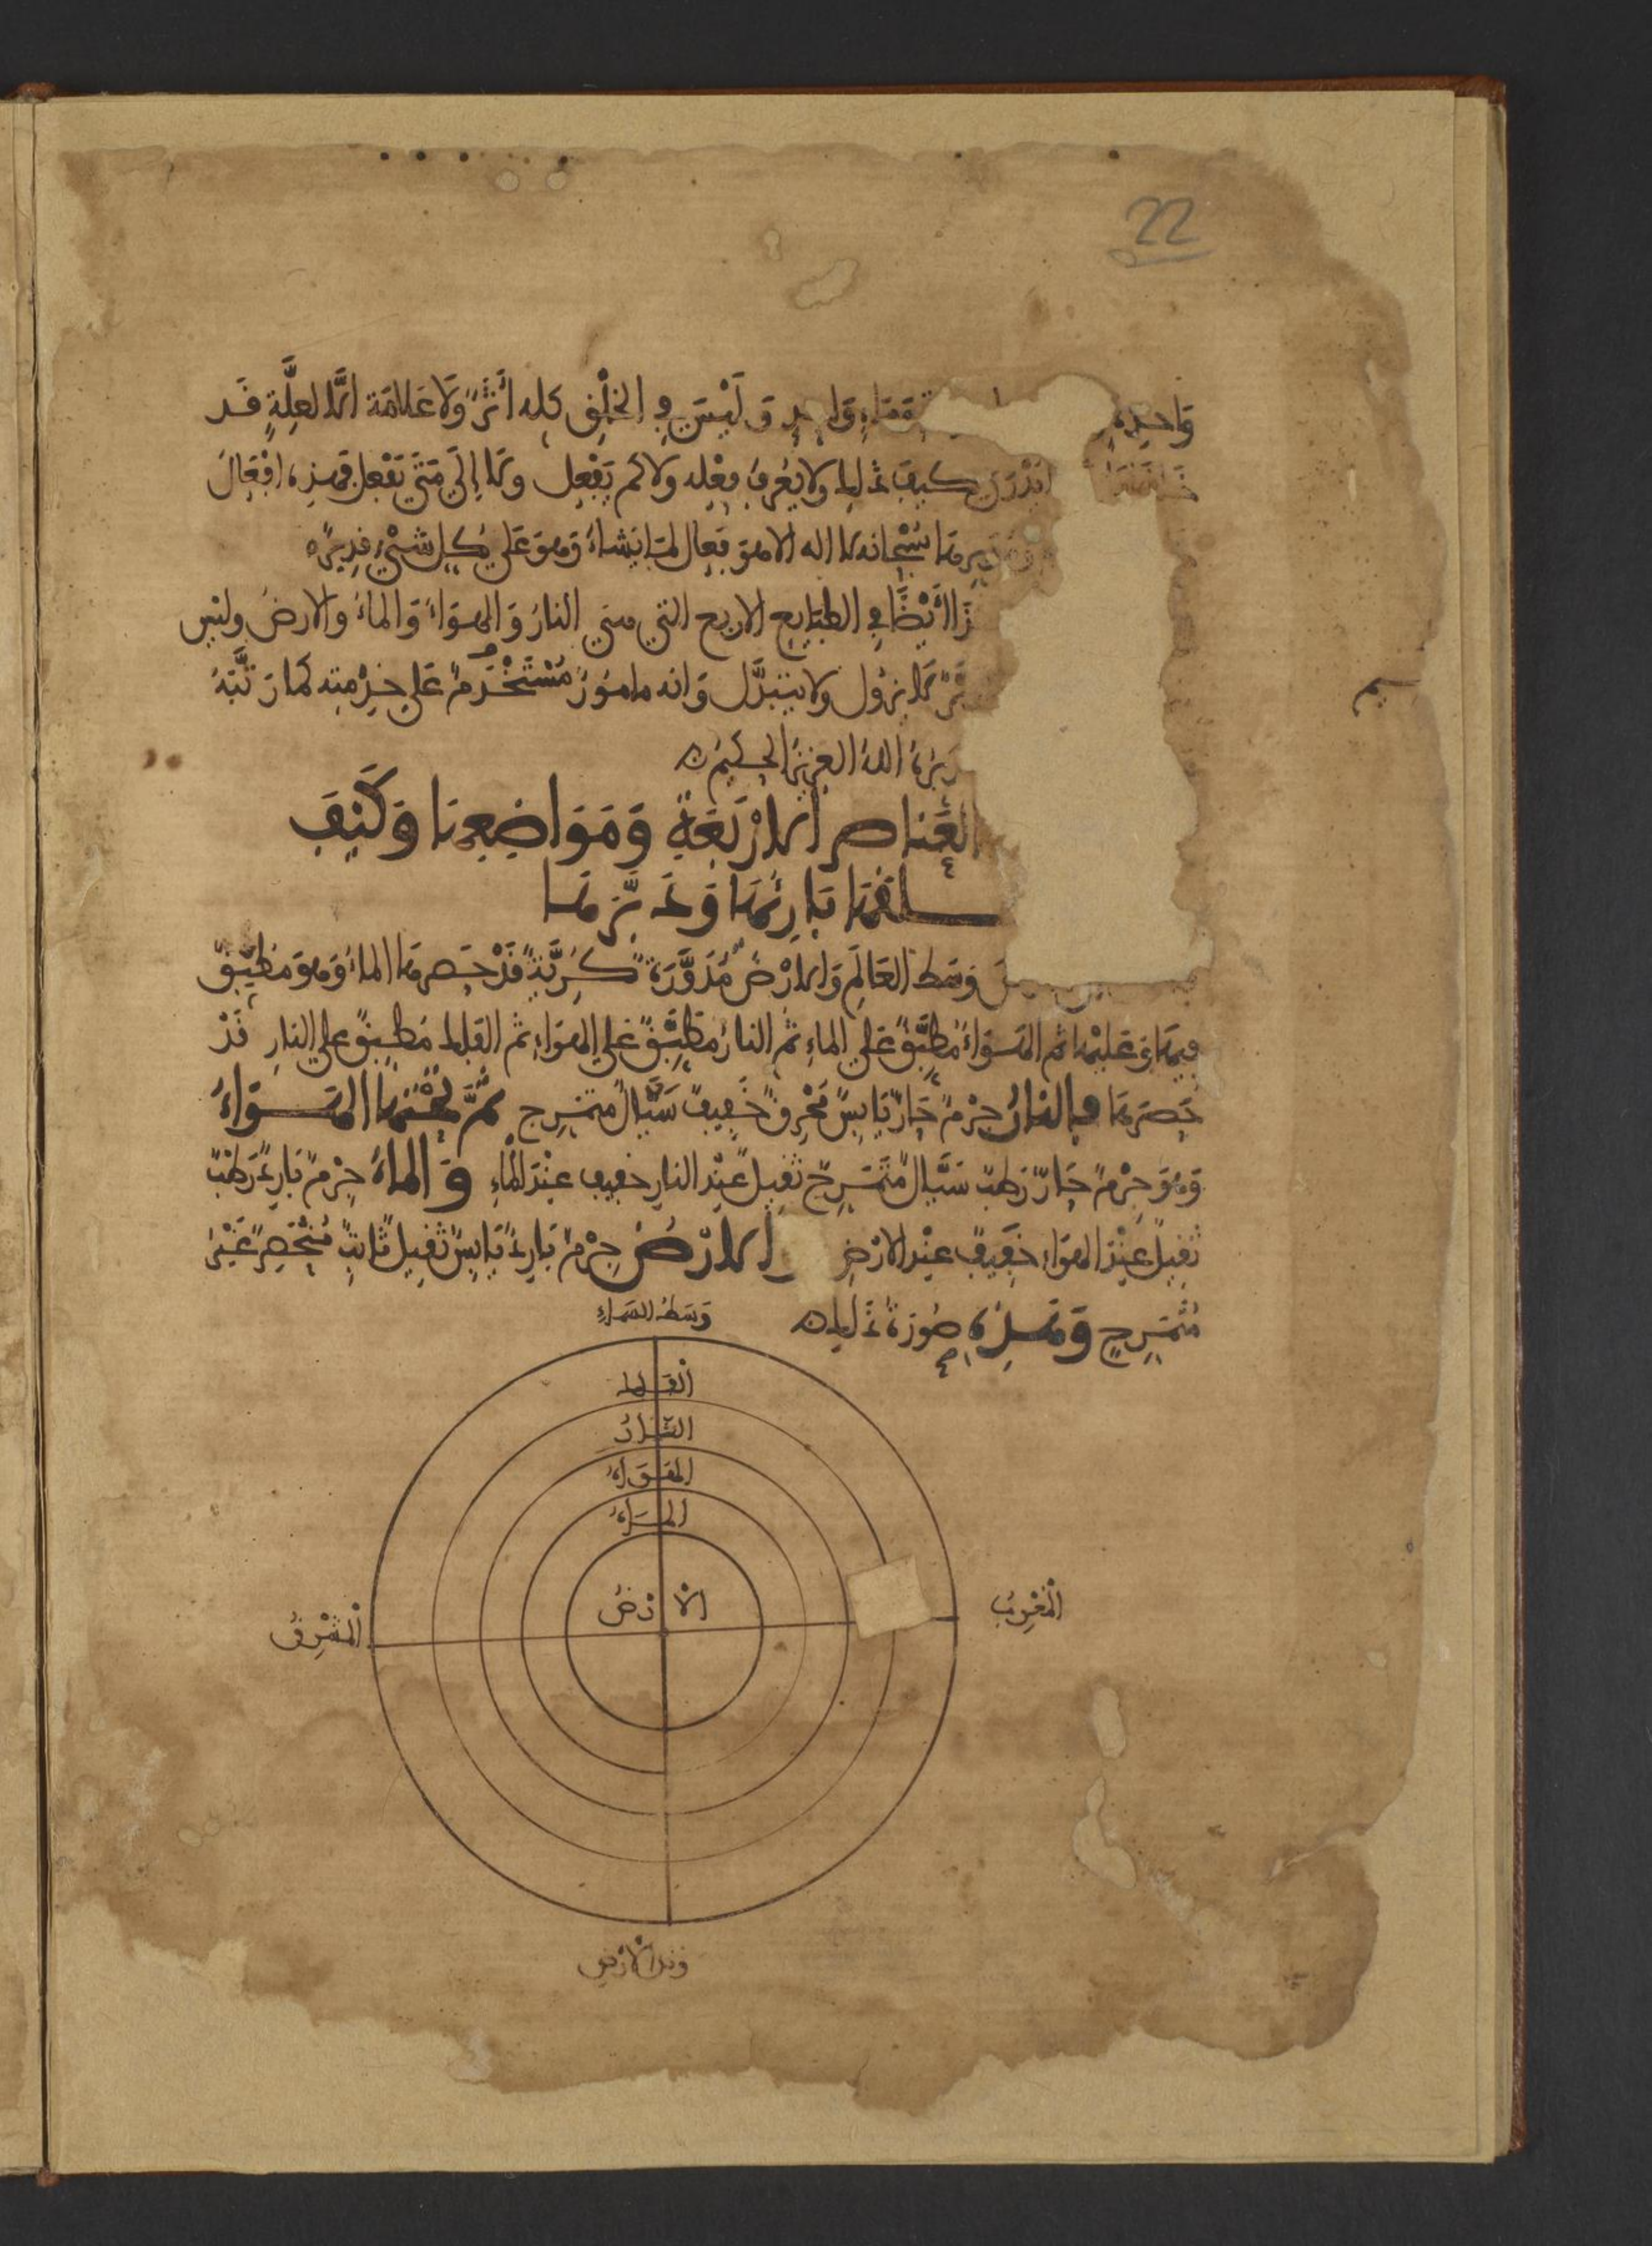 22
واحدة وماء واحد وليس في الخلق كله أثر ولا علامة إلا لعلة قد
كيف ذلك ولا يعرف فعله ولا كم يفعل ولا إلى متى يفعل فهذه أفعال
سبحانه لا اله الا هو فعال لما يشاء وهو على كل شيء قدير
أيضا في الطبايع الاربع التي هي النار والهواء والماء والارض وليس
لا يزول ولا يتبدل وانه مامور مستخدم على خدمته كما رتبه
الله العزيز الحكيم
العناصر الأربعة ومواضعها وكيف
بارئها ودبرها
وسط العالم والأرض مدورة كرية قد حصرها الماء وهو مطبق
فيها وعليها ثم الهواء مطبق على الماء ثم النار مطبق على الهواء ثم الفلك مطبق على النار قد
حصرها فالنار جرم حار يابس محرق خفيف سيال متمزج ثم تحتها الهواء
وهو جرم حار رطب سيال متمزج ثقيل عند النار خفيف عند الماء والماء جرم بارد رطب
ثقيل عند الهواء خفيف عند الارض الأرض جرم بارد يابس ثقيل ثابت منحصر غير
متمزج وهذه صورة ذلك
وسط السماء
الفلك
النار
الهواء
الماء
الأرض
المغرب
المشرق
وتد الأرض